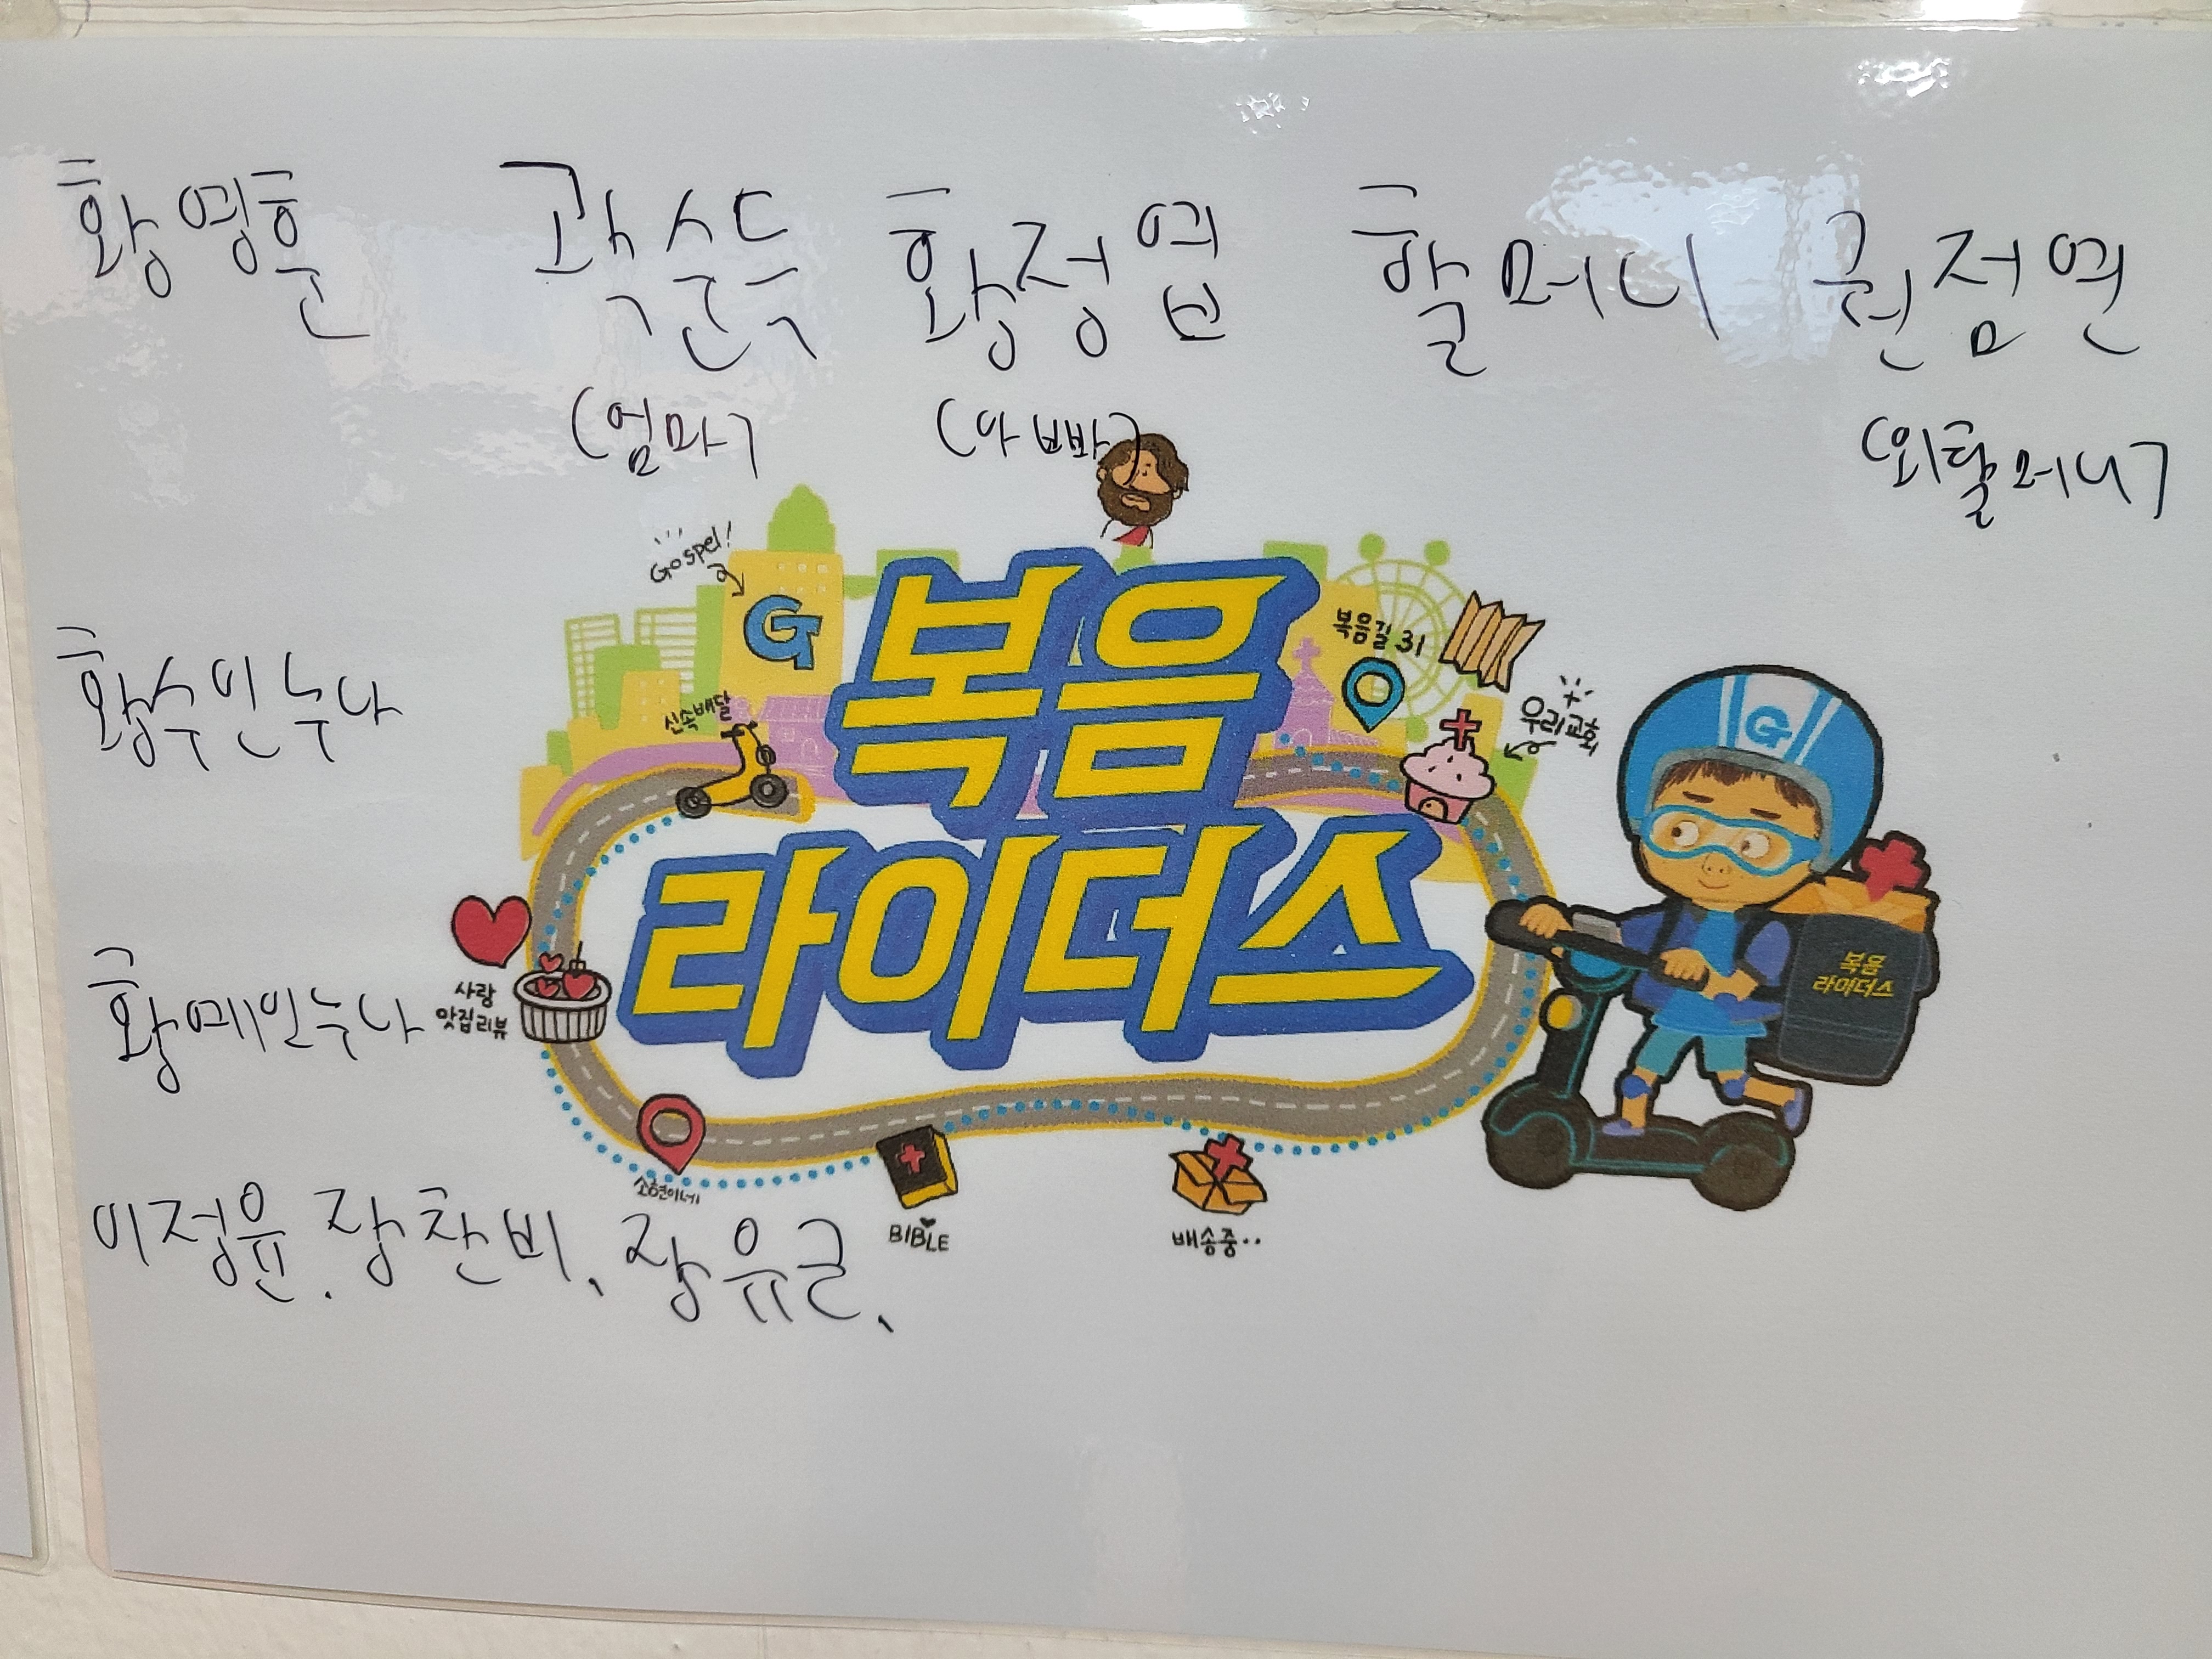 황영훈 곽순득 황정엽 할머니 권점연
(엄마) (아빠) (외할머니)
Gospel!
G
복음
복음길 31
우리교회
G
황수인누나
신속배달
라이더스
복음
라이더스
황메인누나
사랑
맛집리뷰
소현이네
이정윤. 장찬비, 장유근,
BIBLE
배송중..